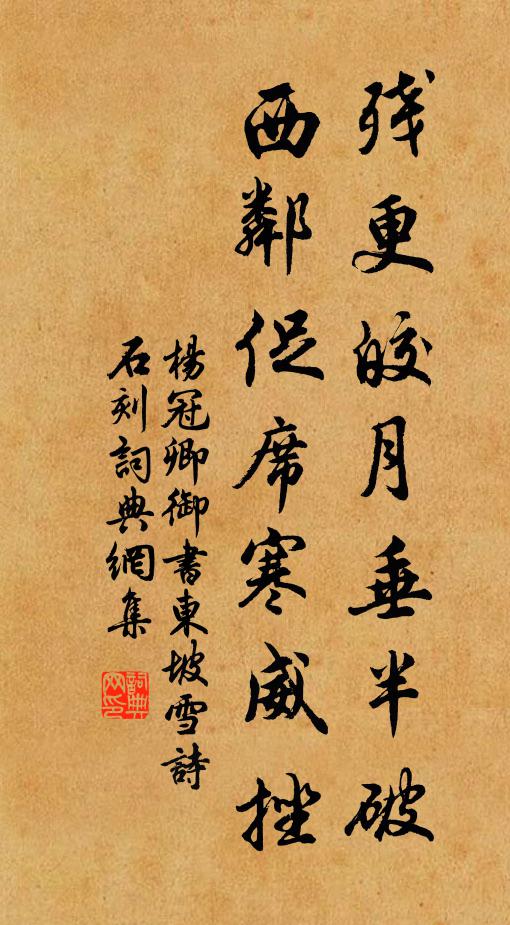 残更皎月垂半破
西鄰促席寒威挫
楊冠卿御書東坡雪詩
石刻詞典網集
詞典網印